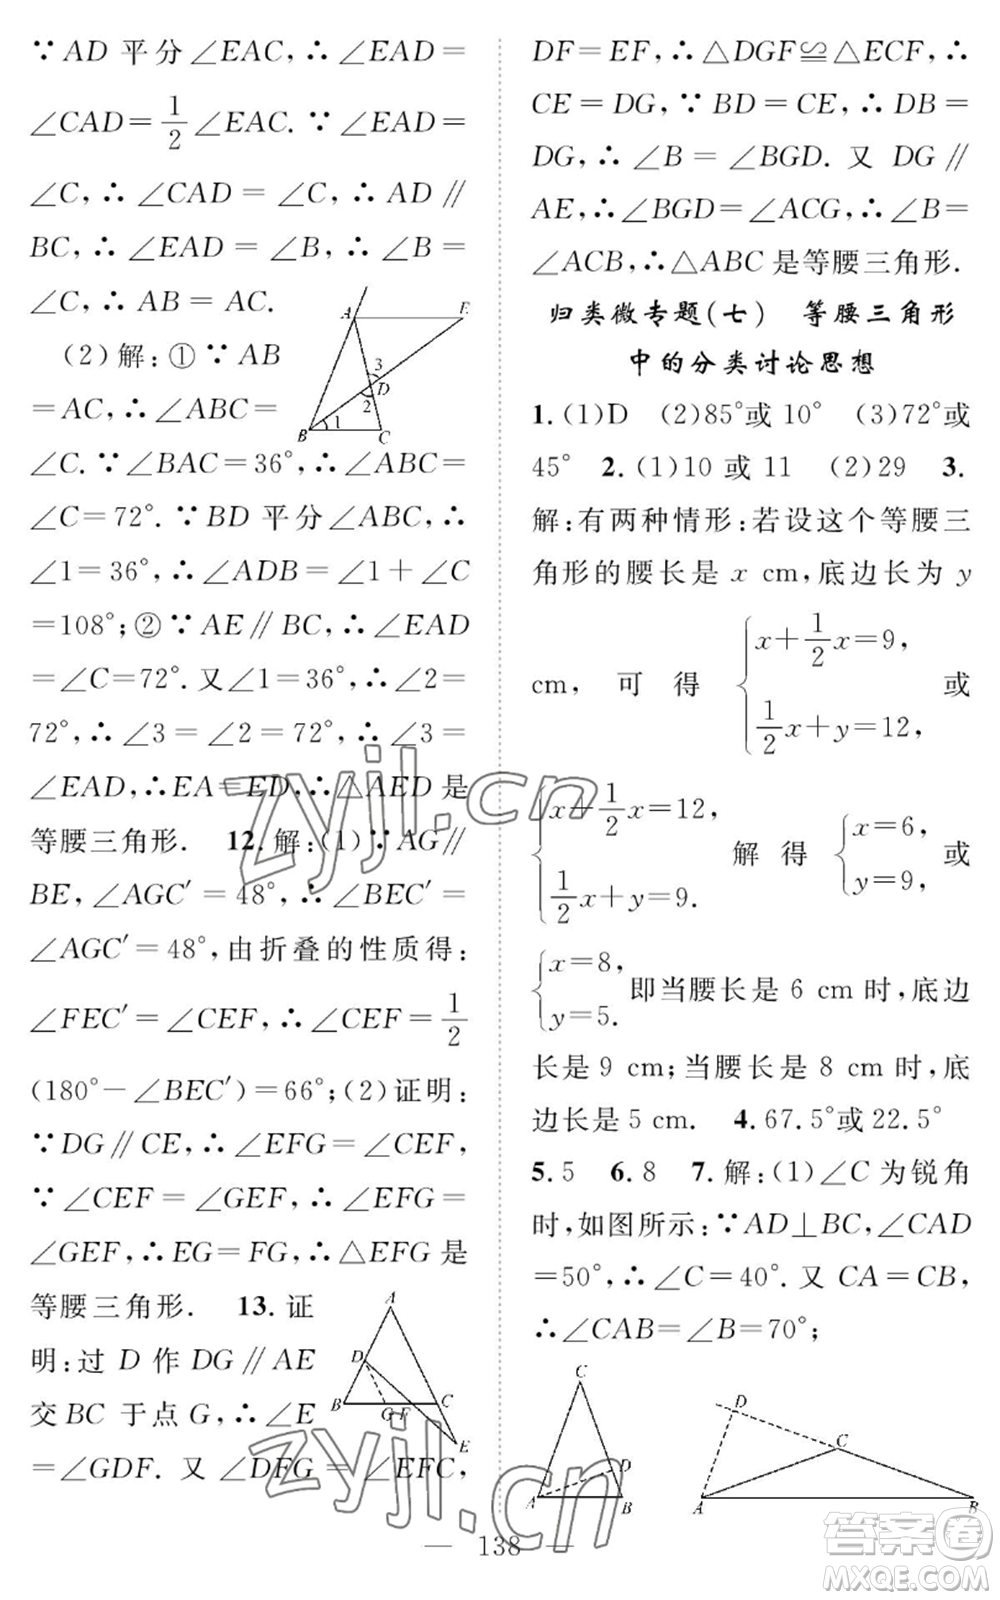 ∵ AD 平分∠EAC,∴∠EAD=
∠CAD=1/2∠EAC. ∵∠EAD=
∠C,∴∠CAD=∠C,∴ AD∥
BC,∴∠EAD=∠B,∴∠B=
∠C,∴ AB = AC.
(2)解:①∵ AB
=AC,∴∠ABC=
∠C. ∵∠BAC=36°,∴∠ABC=
∠C=72°. ∵BD 平分∠ABC,∴
∠1=36°,∴∠ADB=∠1+∠C
=108°;②∵ AE∥BC,∴∠EAD
=∠C=72°. 又∠1=36°,∴∠2=
72°,∴∠3=∠2=72°,∴∠3=
∠EAD,∴EA=ED,∴△AED 是
等腰三角形. 12.解:(1)∵AG∥
BE,∠AGC′=48°,∴∠BEC′=
∠AGC′=48°,由折叠的性质得:
∠FEC′=∠CEF,∴∠CEF=1/2
(180°-∠BEC′)=66°;(2)证明:
∵DG∥CE,∴∠EFG=∠CEF,
∵∠CEF=∠GEF,∴∠EFG=
∠GEF,∴EG=FG,∴△EFG 是
等腰三角形. 13.证
明:过 D 作 DG∥AE
交 BC 于点 G,∴∠E
=∠GDF. 又∠DFG=∠EFC,
A E
3
D
2
B 1 C
A
D
B G F C
E
DF=EF,∴△DGF≌△ECF,∴
CE=DG,∵ BD=CE,∴ DB=
DG,∴∠B=∠BGD. 又 DG∥
AE,∴∠BGD=∠ACG,∴∠B=
∠ACB,∴△ABC 是等腰三角形.
归类微专题(七) 等腰三角形
中的分类讨论思想
1.(1)D (2)85°或 10° (3)72°或
45° 2.(1)10 或 11 (2)29 3.
解:有两种情形:若设这个等腰三
角形的腰长是 x cm,底边长为 y
cm, 可 得 { x+1/2x=9, 1/2x+y=12, 或
{ x+1/2x=12, 1/2x+y=9. 解 得 { x=6, y=9, 或
{ x=8, y=5. 即当腰长是 6 cm 时,底边
长是 9 cm;当腰长是 8 cm 时,底
边长是 5 cm. 4.67.5°或 22.5°
5.5 6.8 7.解:(1)∠C 为锐角
时,如图所示:∵AD⊥BC,∠CAD
=50°,∴∠C=40°. 又 CA=CB,
∴∠CAB=∠B=70°;
C
D
A B
D
C
A B
138
zyjl.cn
zyjl.cn
答案卷
MXQE.COM